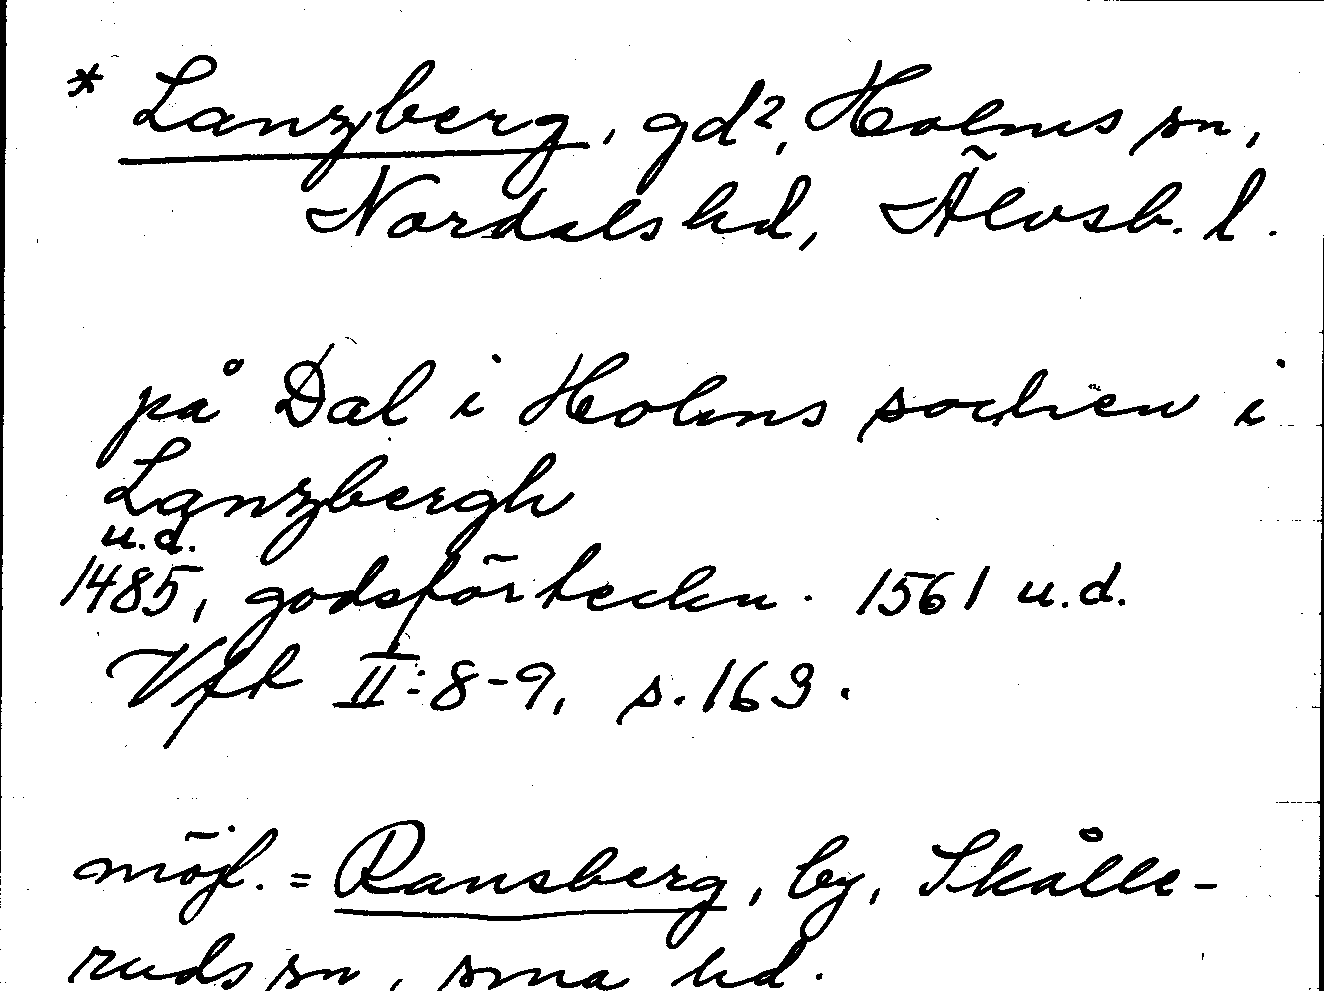 * Lanzberg, gd?, Holms sn,
Nordals hd, Älvsb. l.
på Dal i Holms sochen i
Lanzbergh
u.d.
1485, godsförteckn. 1561 u.d.
Vft II:8-9, s. 163.
möjl. = Ransberg, by, Skålle-
ruds sn, sma hd.